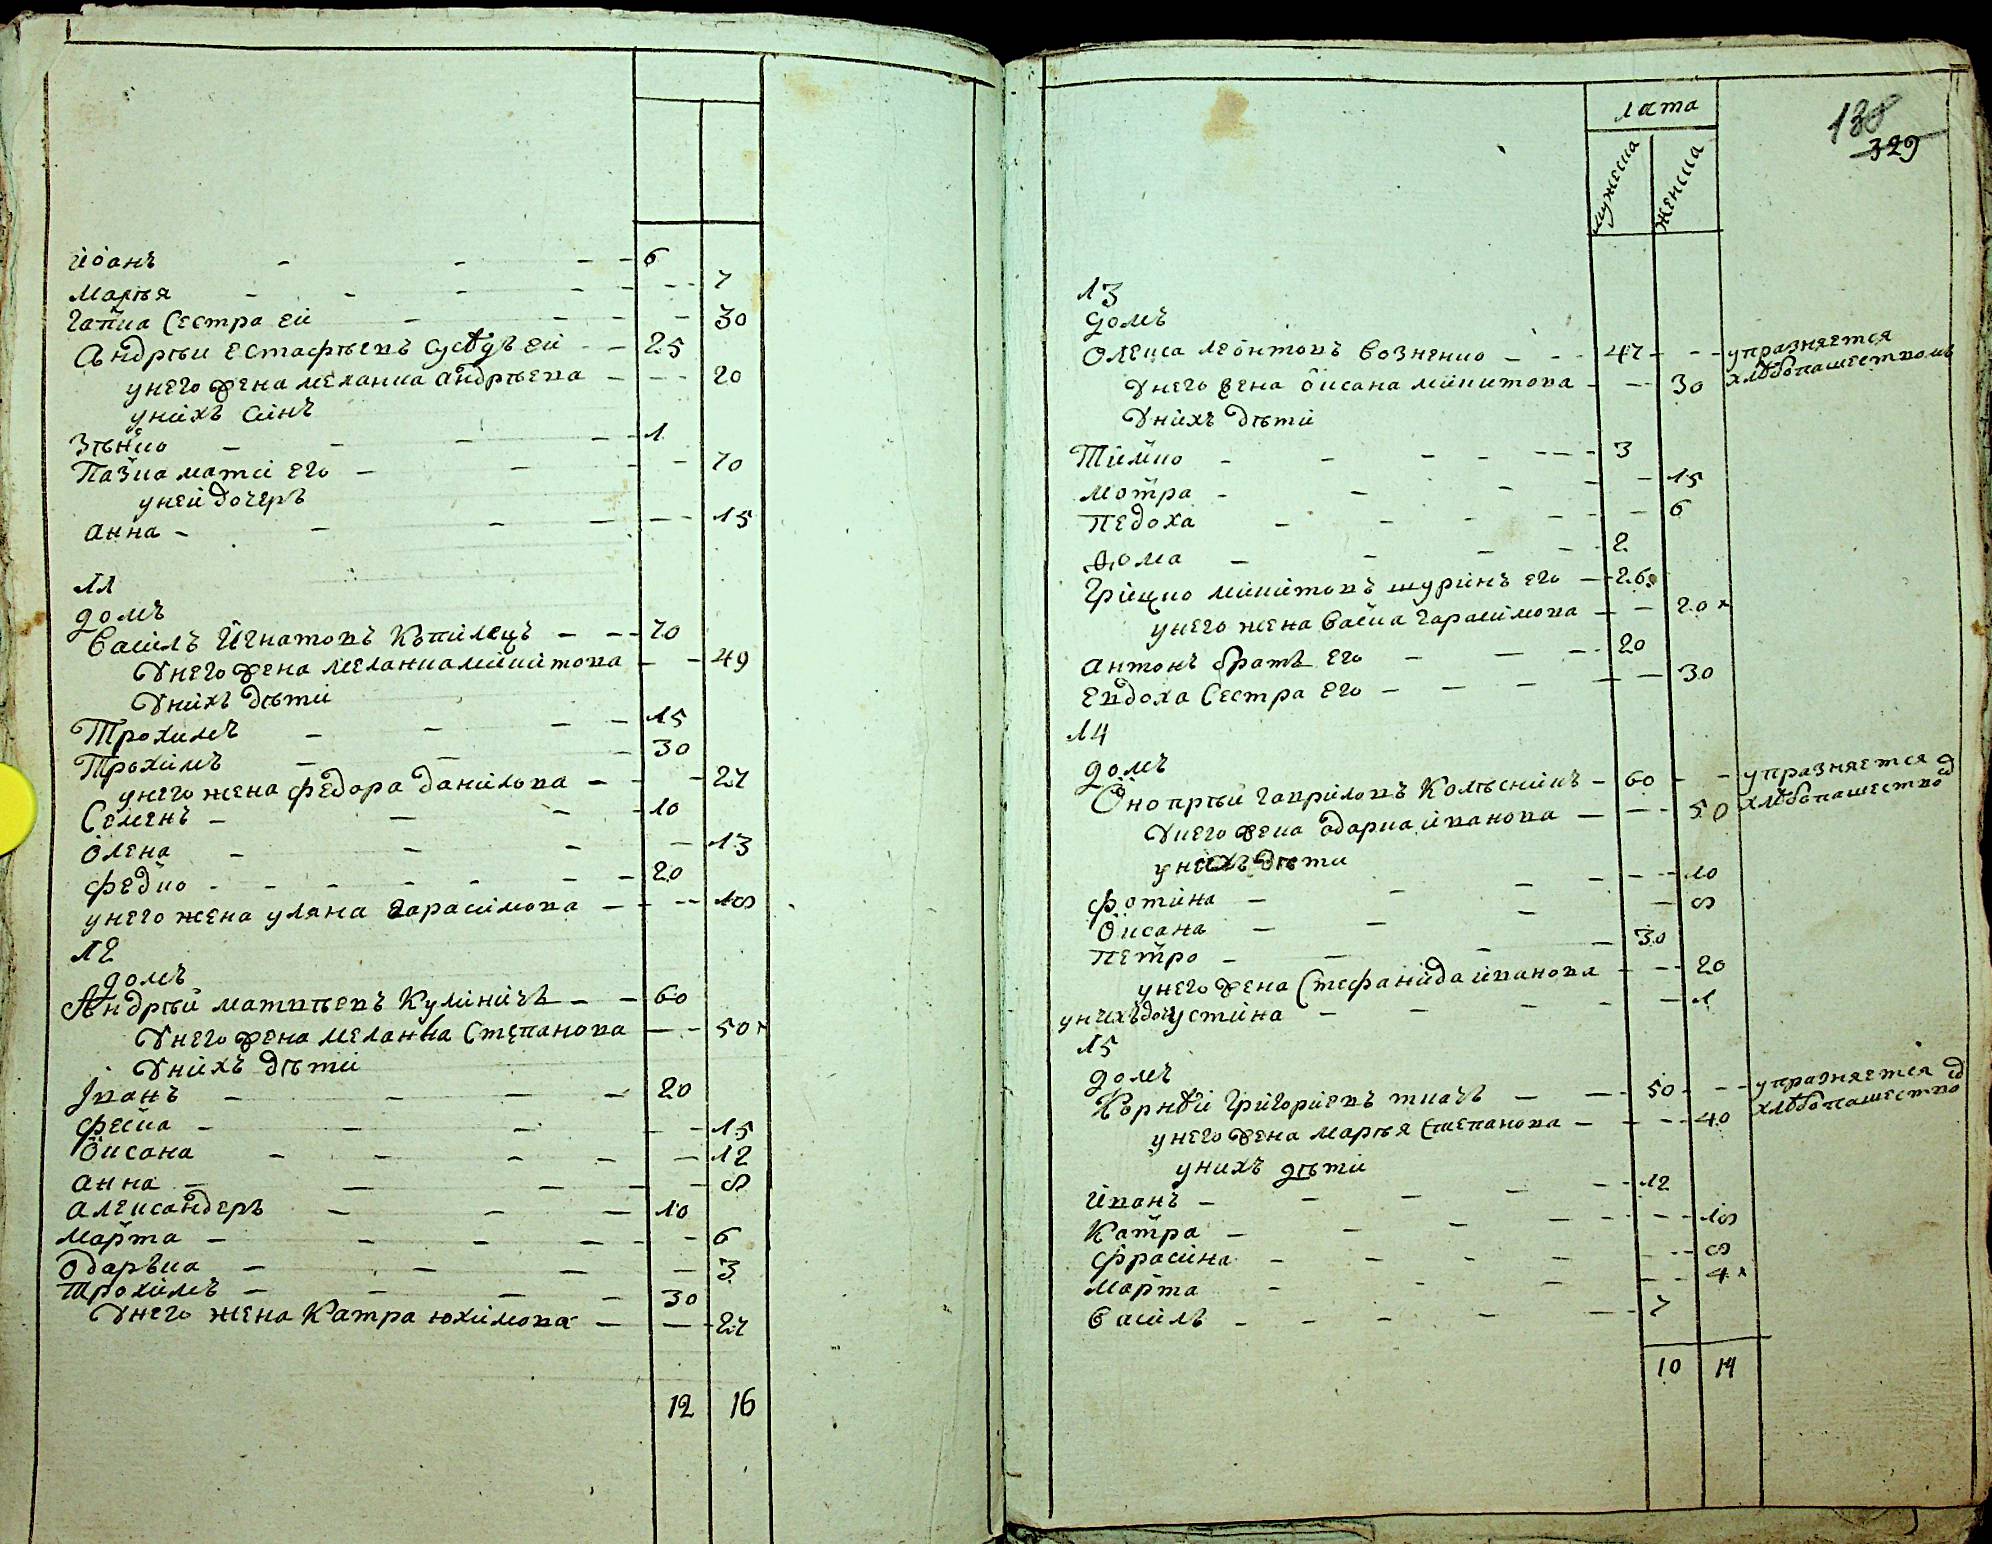 Иоанъ - - - - 6
Маря - - - - - - - 7
Гапка Сестра еи - - - - 30
Андрѣи Естафиевъ Сусѣдъ еи - - 25
у него жена меланка андрѣева - - - 20
у нихъ синъ
Зѣнко - - - - 1
Пазка мати его - - - - 70
у ней дочеръ
анна - - - - - - 15
11
домъ
Василъ Игнатовъ Къпилецъ - - - 70
У него жена меланка микитова - - 49
У нихъ дѣти
Трохимъ - - - - 15
Трохимъ - - - 30
у него жена федора данилова - - - 27
Семенъ - - - 10
Олена - - - - 13
федко - - - - - - - 20
у него жена уляна Гарасимова - - - - 18
12
домъ
Андрѣй матвѣевъ Кулиничъ - - 60
У него жена меланка Степанова - - 50
У нихъ дѣти
Иванъ - - - - 20
феска - - - - - 15
Оксана - - - - - 12
анна - - - - - 8
александеръ - - - 10
марта - - - - - - 6
Одарька - - - - 3
трохимъ - - - - 30
У него жена Катра юхимова - - - 27
12 16
лата
мужеска женска
138
329
13
домъ
Олекса леонтовъ Возненко - - - 47 - - - упразняется
хлѣбопашествомъ
У него жена Оксана микитова - - - 30
У нихъ дѣти
Тимко - - - - - - - 3
мотра - - - - - 15
Педоха - - - - - - 6
Ѳома - - - - 2
Грицко микитовъ шуринъ его - 26
у него жена Васка Гарасимова - - 20
антонъ братъ его - - - 20
Евдоха Сестра его - - - - - 30
14
домъ
Онопрѣй гавриловъ Колѣсникъ - 60 - - упразняется
хлѣбопашество
У него жена одарка иванова - - - - 50
у нихъ дѣти
фотина - - - - - - - 10
Оксана - - - - 8
Петро - - - - 30
у него жена Стефанида иванова - - - 20
у нихъ доч устина - - - - - 1
15
домъ
Корнѣй Григориевъ ткачъ - - - 50 - - - упразняется
хлѣбопашество
у него жена маря Степанова - - - - 40
у нихъ дѣти
Иванъ - - - - - - 12
Катра - - - - - - - 18
фрасина - - - - - - 8
марта - - - - - 4
Василъ - - - - - - 7
10 14